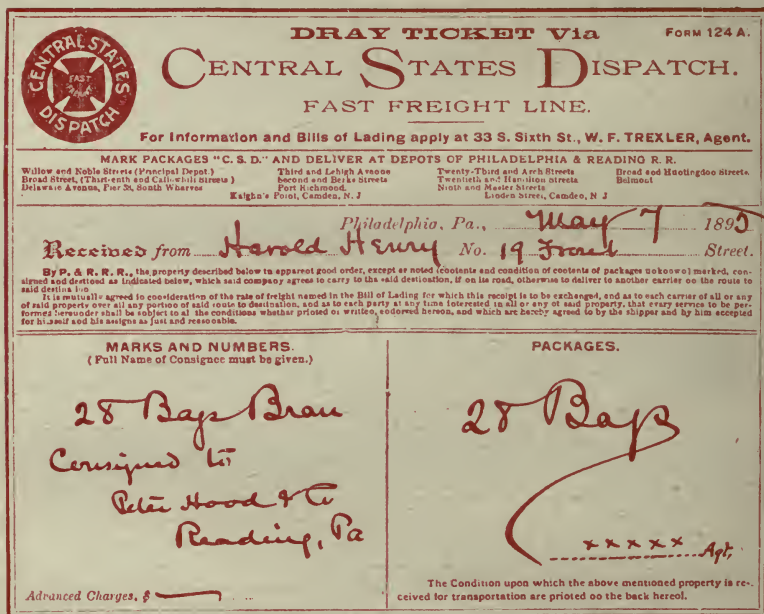 CENTRAL STATES DISPATCH
FAST
DRAY TICKET Via
FORM 124 A.
CENTRAL STATES DISPATCH.
FAST FREIGHT LINE.
For Information and Bills of Lading apply at 33 S. Sixth St., W. F. TREXLER, Agent.
MARK PACKAGES "C. S. D." AND DELIVER AT DEPOTS OF PHILADELPHIA & READING R. R.
Willow and Noble Streets (Principal Depot.)
Broad Street, (Thirteenth and Callowhill Streets)
Delaware Avenue, Pier 31, South Wharves
Third and Lehigh Avenue
Second and Berks Streets
Port Richmond.
Kaighn's Point, Camden, N. J
Twenty-Third and Arch Streets
Twentieth and Hamilton Streets
Ninth and Master Streets
Linden Street, Camden, N J
Broad and Huntingdon Streets.
Belmont
Philadelphia, Pa., May 7 1895
Received from Harold Henry No. 19 Front Street.
By P. & R. R. R., the property described below in apparent good order, except as noted (contents and condition of contents of packages unknown) marked, con-
signed and destined as indicated below, which said company agrees to carry to the said destination, if on its road, otherwise to deliver to another carrier on the route to
said destination
It is mutually agreed in consideration of the rate of freight named in the Bill of Lading for which this receipt is to be exchanged, and as to each carrier of all or any
of said property over all any portion of said route to destination, and as to each party at any time interested in all or any of said property, that every service to be per-
formed hereunder shall be subject to all the conditions whether printed or written, endorsed hereon, and which are hereby agreed to by the shipper and by him accepted
for himself and his assigns as just and reasonable.
MARKS AND NUMBERS.
(Full Name of Consignee must be given.)
28 Bags Bran
Consigned to
Peter Hood & Co
Reading, Pa
Advanced Charges, $
PACKAGES.
28 Bags
x x x x x Agt.
The Condition upon which the above mentioned property is re-
ceived for transportation are printed on the back hereof.